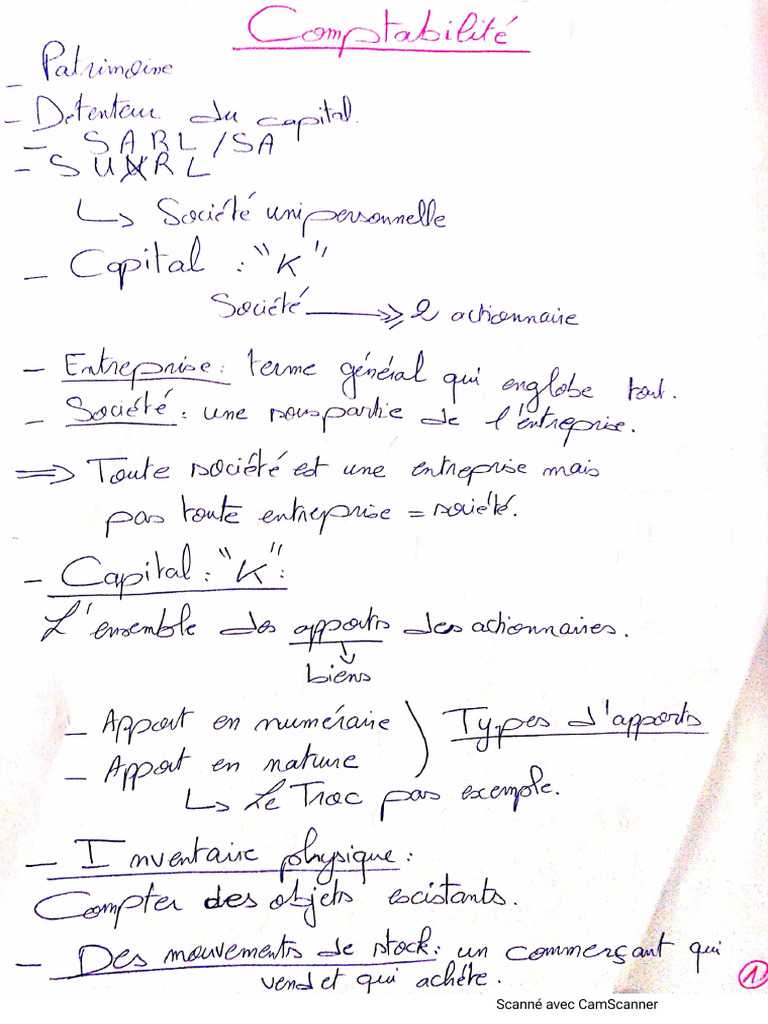 Comptabilité
- Patrimoine
- Détenteur du capital.
- SARL/SA
- SUXRL
↳ Société unipersonnelle
- Capital : "K"
Société ⟶ 2 actionnaire
- Entreprise : terme général qui englobe tout.
- Société : une souspartie de l'entreprise.
⇒ Toute société est une entreprise mais
pas toute entreprise = société.
- Capital : "K" :
L'ensemble des apports des actionnaires.
↓
biens
- Apport en numéraire ) Types d'apports
- Apport en nature
↳ Le Troc pas exemple.
- Inventaire physique :
Compter des objets escistants.
- Des mouvements de stock : un commerçant qui
vend et qui achéte.
1
Scanné avec CamScanner